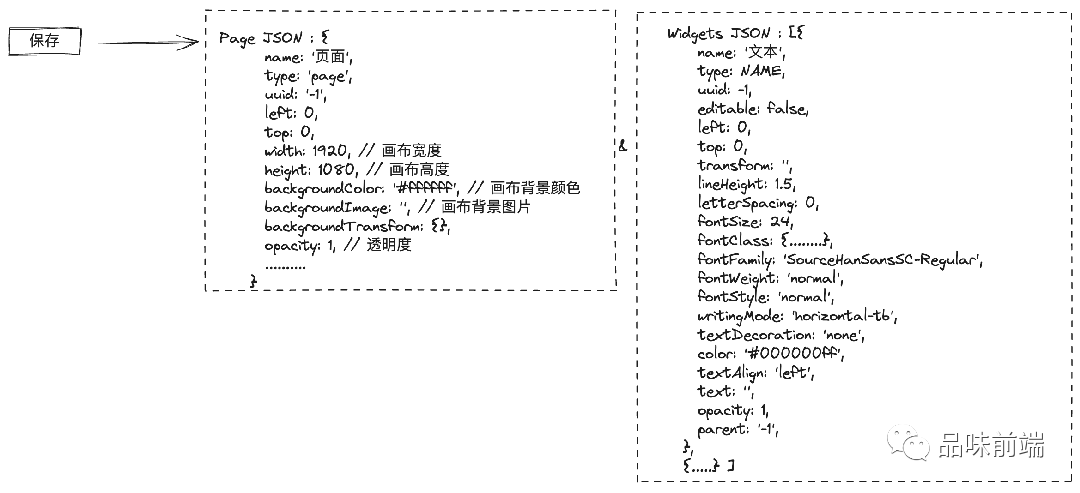 保存
Page JSON : {
name: '页面',
type: 'page',
uuid: '-1',
left: 0,
top: 0,
width: 1920, // 画布宽度
height: 1080, // 画布高度
backgroundColor: '#ffffff', // 画布背景颜色
backgroundImage: '', // 画布背景图片
backgroundTransform: {},
opacity: 1, // 透明度
..........
}
&
Widgets JSON : [{
name: '文本',
type: NAME,
uuid: -1,
editable: false,
left: 0,
top: 0,
transform: '',
lineHeight: 1.5,
letterSpacing: 0,
fontSize: 24,
fontClass: {........},
fontFamily: 'SourceHanSansSC-Regular',
fontWeight: 'normal',
fontStyle: 'normal',
writingMode: 'horizontal-tb',
textDecoration: 'none',
color: '#000000ff',
textAlign: 'left',
text: '',
opacity: 1,
parent: '-1',
},
{.....} ]
品味前端